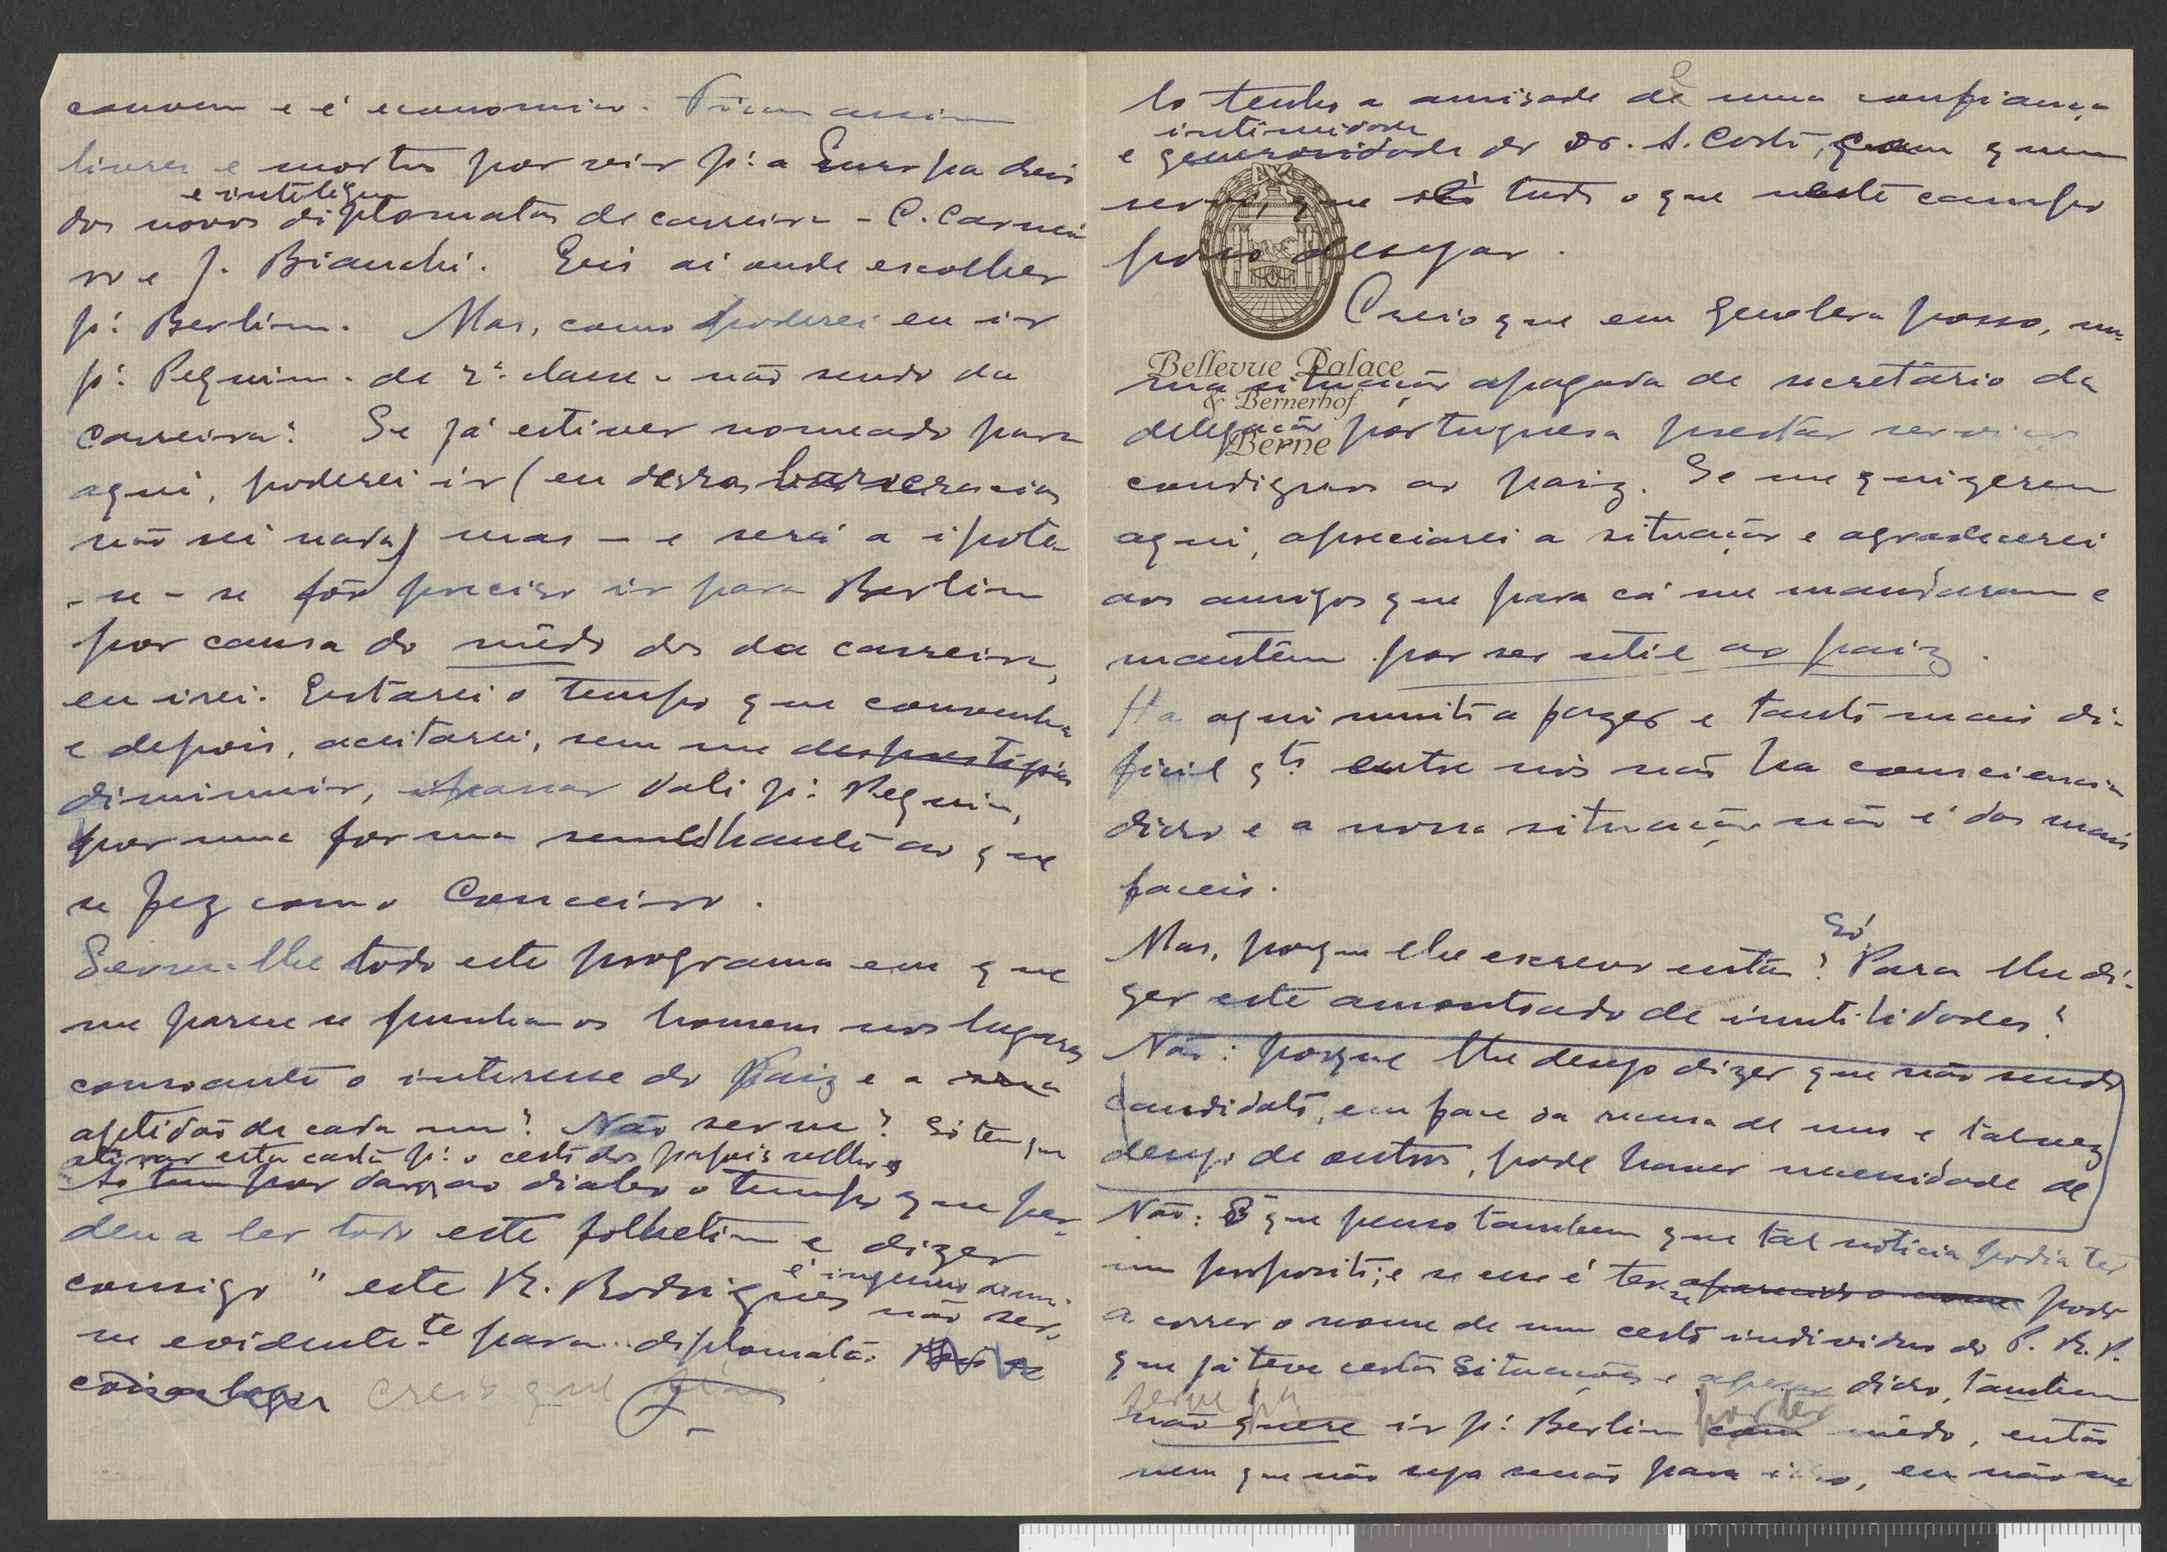 convem e é economico. Ficam assim
livres e mortos por vir p.ª a Europa dois
e intelig.
dos novos diplomatas de carreira - C. Carnei
ro e J. Bianchi. Eis aí onde escolher
p.ª Berlim. Mas, como poderei eu ir
p.ª Pequim - de 2.ª classe - não sendo da
carreira? Se já estiver nomeado para
aqui, poderei ir (eu dessas burocracias
não sei nada) mas - e será a ipote-
-se - se fôr preciso ir para Berlim
por causa do mêdo dos da carreira,
eu irei. Estarei o tempo que convenha
e depois, aceitarei, sem me desprestigiar
diminuir, passar dali p.ª Pequim,
por uma forma semelhante ao que
se fez com o Conceiro.
Serve-lhe todo este programa em que
me parece se punham os homens nos lugares
consoante o interesse do Paiz e a sua
aptidão de cada um? Não serve? Só tem que
atirar esta carta p.ª o cesto dos papeis velhos
Só tem por dar ao diabo o tempo que per-
deu a ler todo este folhetim e dizer
é ingenuo demais
comsigo "este R. Rodrigues não ser-
ve evidente.te para diplomata.
creio que
lo tenho a amisade de uma confiança
intimidade
e generosidade do Dr. A. Costa, com quem
servi, que é tudo o que neste campo
posso desejar.
Bellevue Palace
& Bernerhof
Berne
Creio que em Genebra posso, nu-
ma situação apagada de secretário da
delegação portuguesa prestar serviços
condignos ao paiz. Se me quizerem
aqui, apreciarei a situação e agradecerei
aos amigos que para cá me mandaram e
mantêm por ser util ao paiz.
Ha aqui muito a fazer e tanto mais di-
ficil q.to entre nós não ha consciencia
disso e a nossa situação não é das mais
faceis.
Só
Mas, porque lhe escrevo então? Para lhe di-
zer este amontoado de inutilidades?
Não: porque lhe desejo dizer que não sendo
candidato, em face da recusa de uns e talvez
desejo de outros, pode haver necessidade de
Não: É que penso tambem que tal noticia podia ter
um proposito; e se esse é ter aparecido o nome posto
a correr o nome de um certo individuo do P. R. P.
que já teve certas situações e apesar disso, tambem
serve p.ª
por ter
não quere ir p.ª Berlim com mêdo, então
nem que não seja senão para isso, eu não me